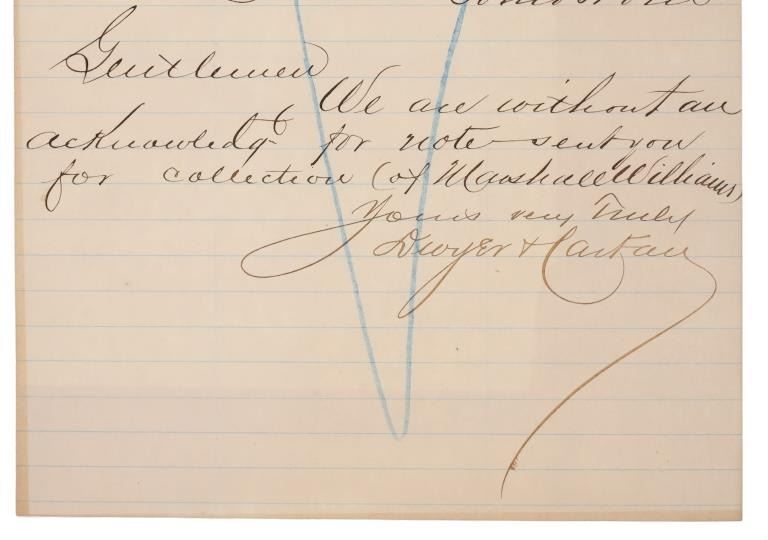 Gentlemen
We are without an
acknowledgt for note sent you
for collection (of Marshall Williams)
Yours very Truly
Dwyer &